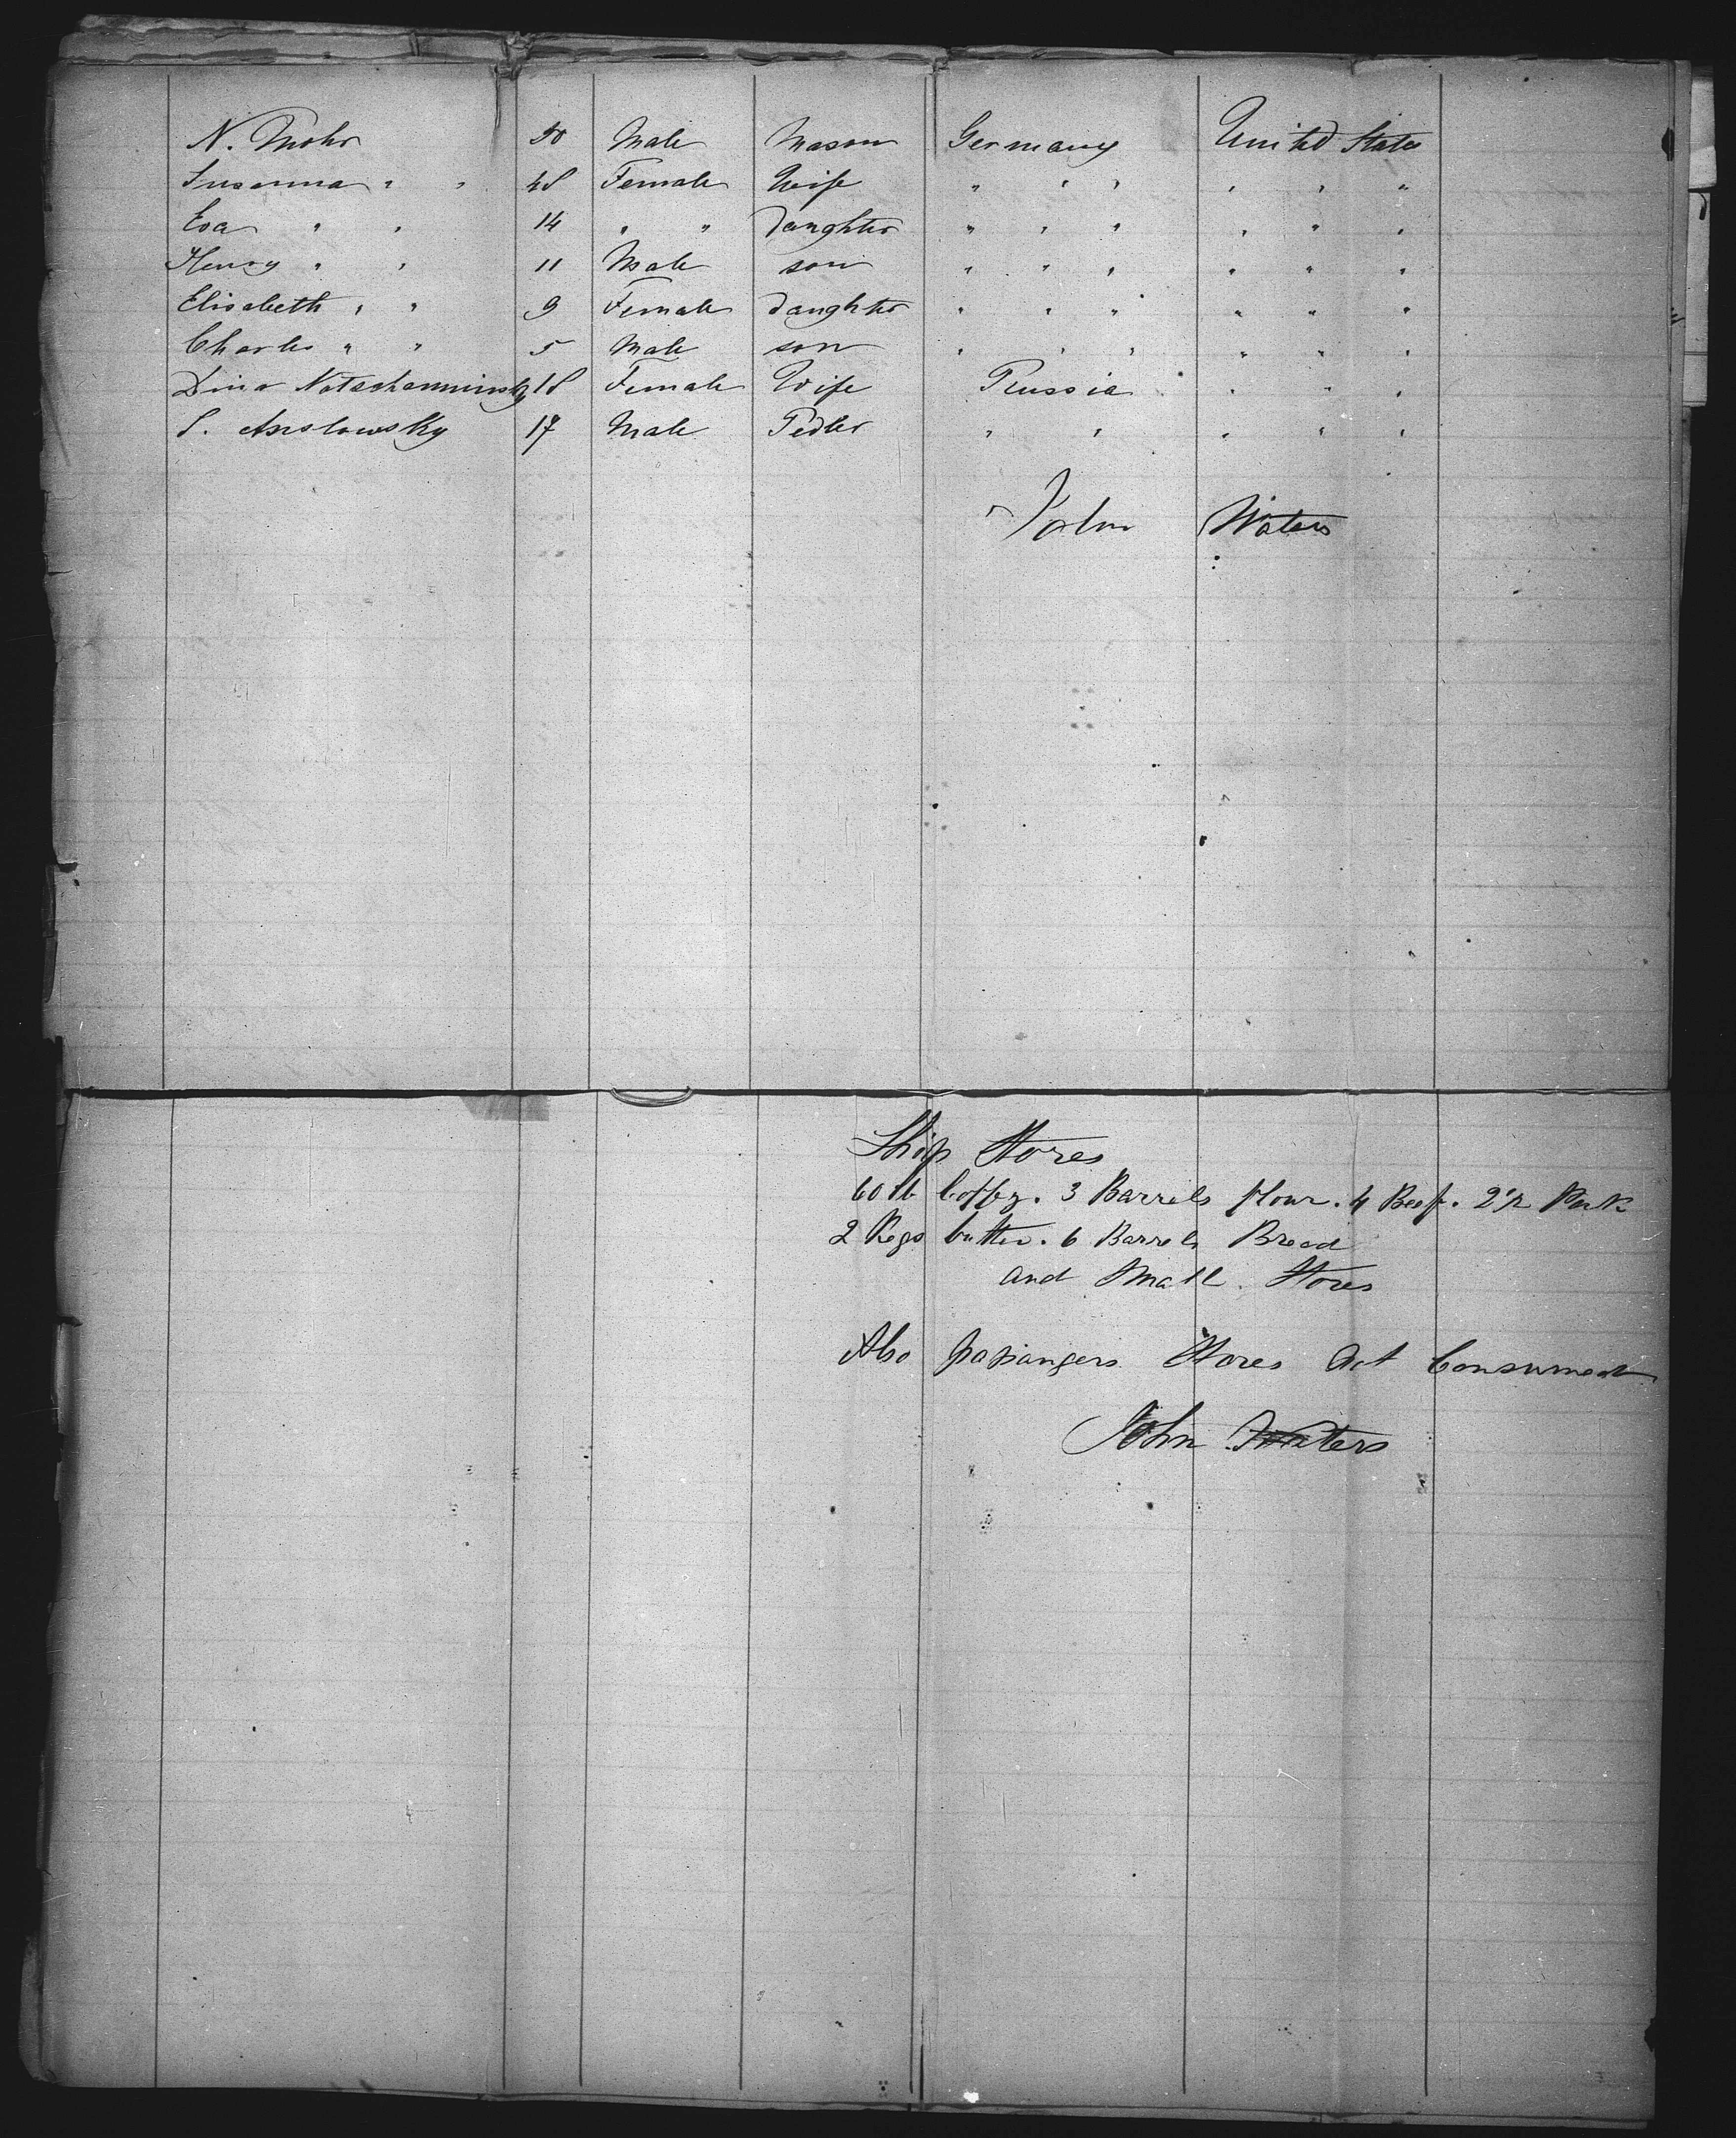 N. Mohr 50 Male Mason Germany United States
Susanna " " 48 Female Wife " " " " " "
Eva " " 14 " " Daughter " " " " " "
Henry " " 11 Male son " " " " " "
Elisabeth " " 9 Female Daughter " " " " " "
Charles " " 5 Male son " " " " " "
Dina 18 Female Wife Russia " " "
S. Anslowsky 17 Male Pedler " " " " "
John Waters
Ship Stores
60 lb Coffey. 3 Barrels flour. 4 Beef. 2 1/2 Pork
2 Kegs butter. 6 Barrels Bread
and Small Stores
Also passangers Stores not Consumed
John Waters